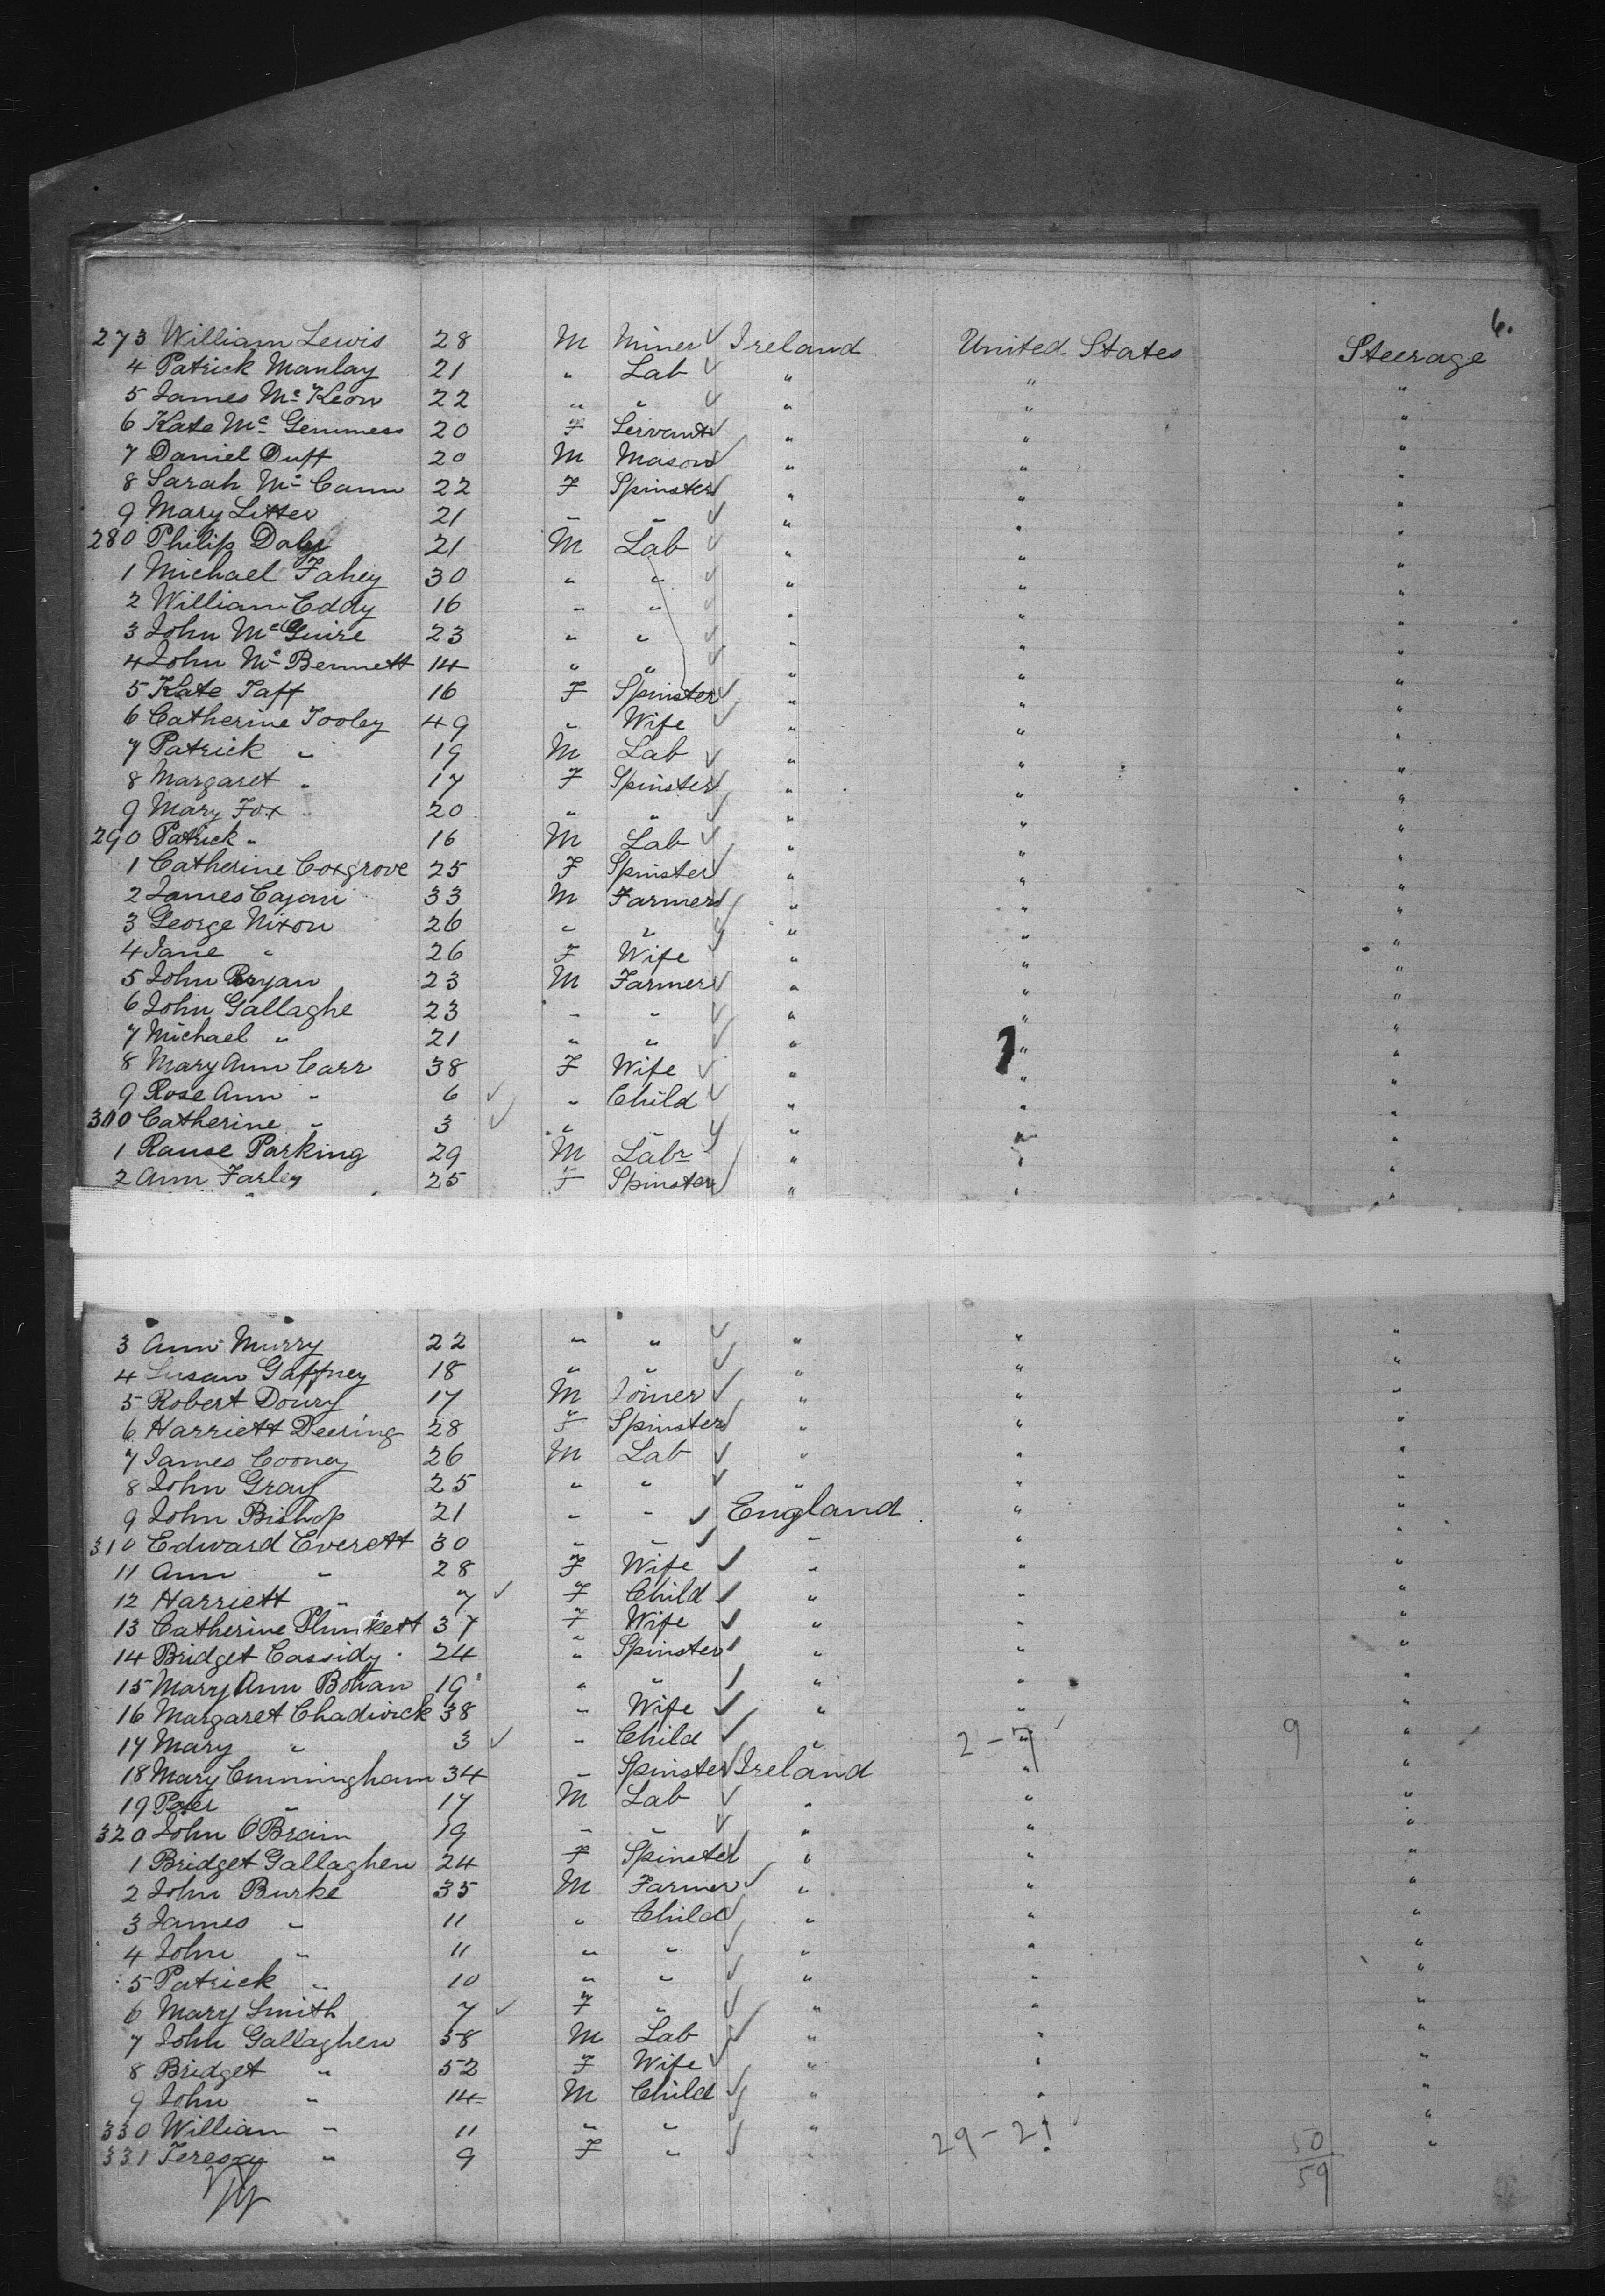 6.
273 William Lewis 28 M Miner ✓ Ireland United States Steerage
4 Patrick Manlay 21 " Lab ✓ " " "
5 James Mc Keon 22 " " ✓ " " "
6 Kate Mc Gemmess 20 F Servant ✓ " " "
7 Daniel Duff 20 M Mason ✓ " " "
8 Sarah Mc Cann 22 F Spinster ✓ " " "
9 Mary Litter 21 " " ✓ " " "
280 Philip Daly 21 M Lab ✓ " " "
1 Michael Fahey 30 " " ✓ " " "
2 William Eddy 16 " " ✓ " " "
3 John McGuire 23 " " ✓ " " "
4 John Mc Bennett 14 " " ✓ " " "
5 Kate Taff 16 F Spinster ✓ " " "
6 Catherine Tooley 49 " Wife ✓ " " "
7 Patrick " 19 M Lab ✓ " " "
8 Margaret " 17 F Spinster ✓ " " "
9 Mary Fox 20 " " ✓ " " "
290 Patrick " 16 M Lab ✓ " " "
1 Catherine Coxgrove 25 F Spinster ✓ " " "
2 James Cajan 33 M Farmer ✓ " " "
3 George Nixon 26 " " ✓ " " "
4 Jane " 26 F Wife ✓ " " "
5 John Bryan 23 M Farmer ✓ " " "
6 John Gallaghe 23 " " ✓ " " "
7 Michael " 21 " " ✓ " " "
8 Mary Ann Carr 38 F Wife ✓ " " "
9 Rose Ann " 6 ✓ " Child ✓ " " "
300 Catherine " 3 ✓ " " ✓ " " "
1 Rause Parking 29 M Labr ✓ " " "
2 Ann Farley 25 F Spinster ✓ " " "
3 Ann Murry 22 " " ✓ " " "
4 Susan Gaffney 18 " " ✓ " " "
5 Robert Doury 17 M Joiner ✓ " " "
6 Harriett Deering 28 F Spinster ✓ " " "
7 James Cooney 26 M Lab ✓ " " "
8 John Gray 25 " " ✓ " " "
9 John Bishop 21 " " ✓ England " "
310 Edward Everett 30 " " ✓ " " "
11 Ann " 28 F Wife ✓ " " "
12 Harriett " 7 ✓ F Child ✓ " " "
13 Catherine Plunkett 37 F Wife ✓ " " "
14 Bridget Cassidy 24 " Spinster ✓ " " "
15 Mary Ann Bohan 19 " " ✓ " " "
16 Margaret Chadwick 38 " Wife ✓ " " "
17 Mary " 3 ✓ " Child ✓ " 2 - 7 9 "
18 Mary Cunningham 34 " Spinster ✓ Ireland " "
19 Peter " 17 M Lab ✓ " " "
320 John O Brain 19 " " ✓ " " "
1 Bridget Gallagher 24 F Spinster " " "
2 John Burke 35 M Farmer ✓ " " "
3 James " 11 " Child ✓ " " "
4 John " 11 " " ✓ " " "
5 Patrick " 10 " " ✓ " " "
6 Mary Smith 7 ✓ F " ✓ " " "
7 John Gallagher 58 M Lab ✓ " " "
8 Bridget " 52 F Wife ✓ " " "
9 John " 14 M Child ✓ " " "
330 William " 11 " " ✓ " 29 - 21 50 "
331 Teresa " 9 F " ✓ " 59 "